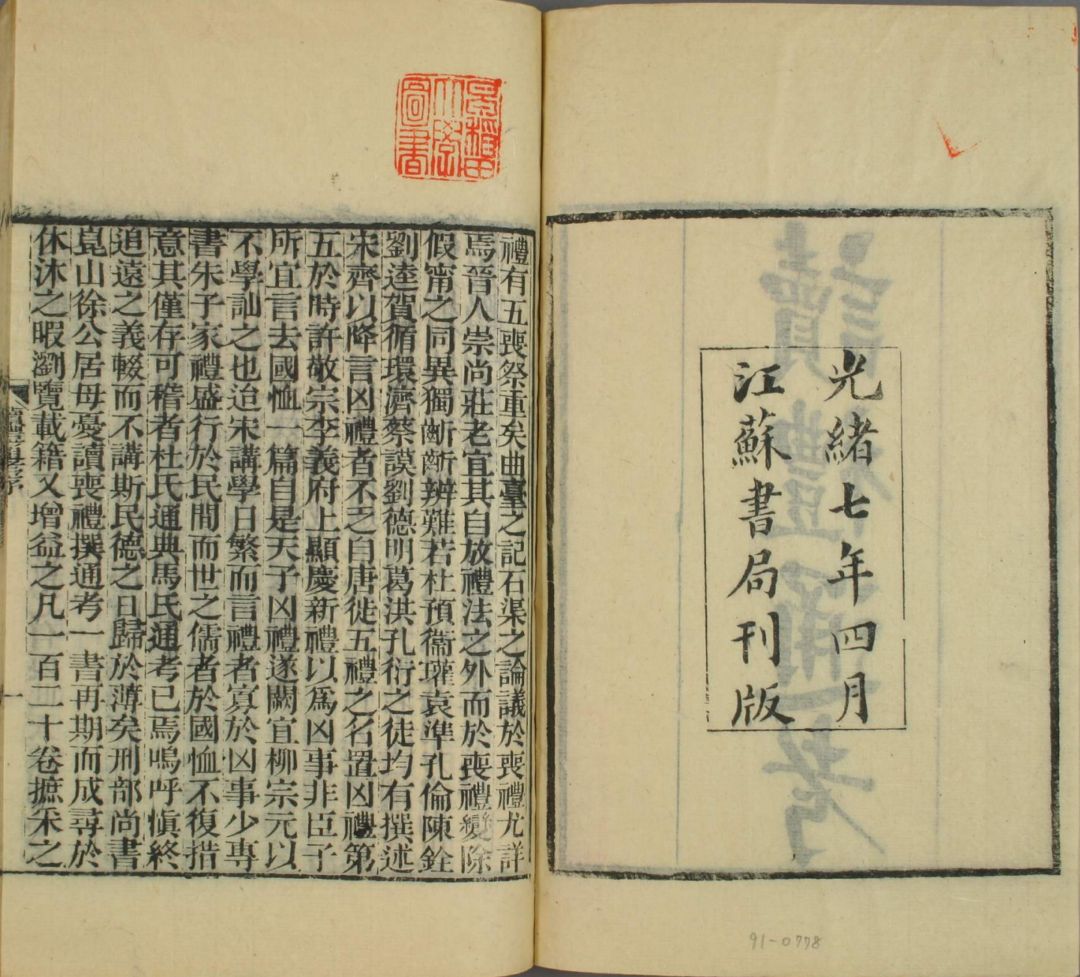 光緒七年四月
江蘇書局刊版
91-0778
早稻田
大學
圖書
禮有五喪祭重矣曲臺之記石渠之論議於喪禮尤詳
焉晉人崇尚莊老宜其自放禮法之外而於喪禮變除
假甯之同異獨齗齗辨難若杜預衞瓘袁準孔倫陳銓
劉逵賀循環濟蔡謨劉德明葛洪孔衍之徒均有撰述
宋齊以降言凶禮者不乏自唐徙五禮之名置凶禮第
五於時許敬宗李義府上顯慶新禮以爲凶事非臣子
所宜言去國恤一篇自是天子凶禮遂闕宜柳宗元以
不學訕之也迨宋講學日繁而言禮者寡於凶事少專
書朱子家禮盛行於民間而世之儒者於國恤不復措
意其僅存可稽者杜氏通典馬氏通考已焉嗚呼愼終
追遠之義輟而不講斯民德之日歸於薄矣刑部尚書
崑山徐公居母憂讀喪禮撰通考一書再期而成尋於
休沐之暇瀏覽載籍又增益之凡一百二十卷摭采之
一